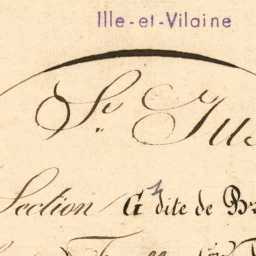 Ille-et-Vilaine
St. Jus
Section G3 dite de Br